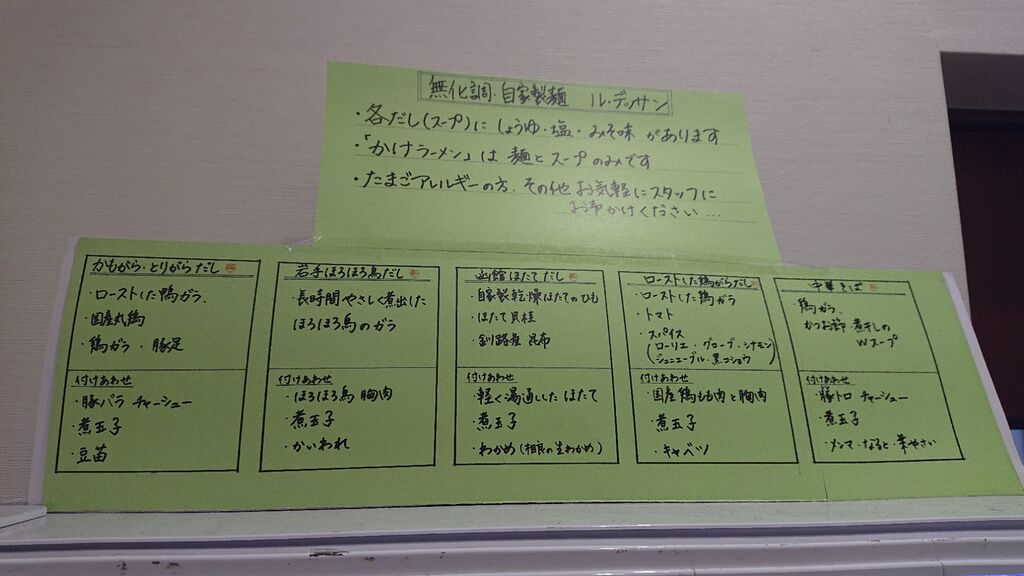 無化調・自家製麺 ル・デッサン
・各だし(スープ)に しょうゆ・塩・みそ味 があります
・「かけラーメン」は 麺とスープのみです
・たまごアレルギーの方、その他 お気軽にスタッフに
お声かけください…
かもがら・とりがらだし
・ローストした鴨ガラ、
・国産丸鶏
・鶏ガラ・豚足
付けあわせ
・豚バラ チャーシュー
・煮玉子
・豆苗
岩手ほろほろ鳥だし
・長時間やさしく煮出した
ほろほろ鳥のガラ
付けあわせ
・ほろほろ鳥 胸肉
・煮玉子
・かいわれ
函館ほたてだし
・自家製乾燥ほたてのひも
・ほたて貝柱
・釧路産 昆布
付けあわせ
・軽く湯通しした ほたて
・煮玉子
・わかめ(相良の生わかめ)
ローストした鶏がらだし
・ローストした鶏ガラ
・トマト
・スパイス
(ローリエ・グローブ・シナモン
ジュニエーブル・黒コショウ)
付けあわせ
・国産鶏もも肉と胸肉
・煮玉子
・キャベツ
中華そば
鶏ガラ、
かつお節・煮干しの
Wスープ
付けあわせ
・豚トロ チャーシュー
・煮玉子
・メンマ・なると・葉やさい